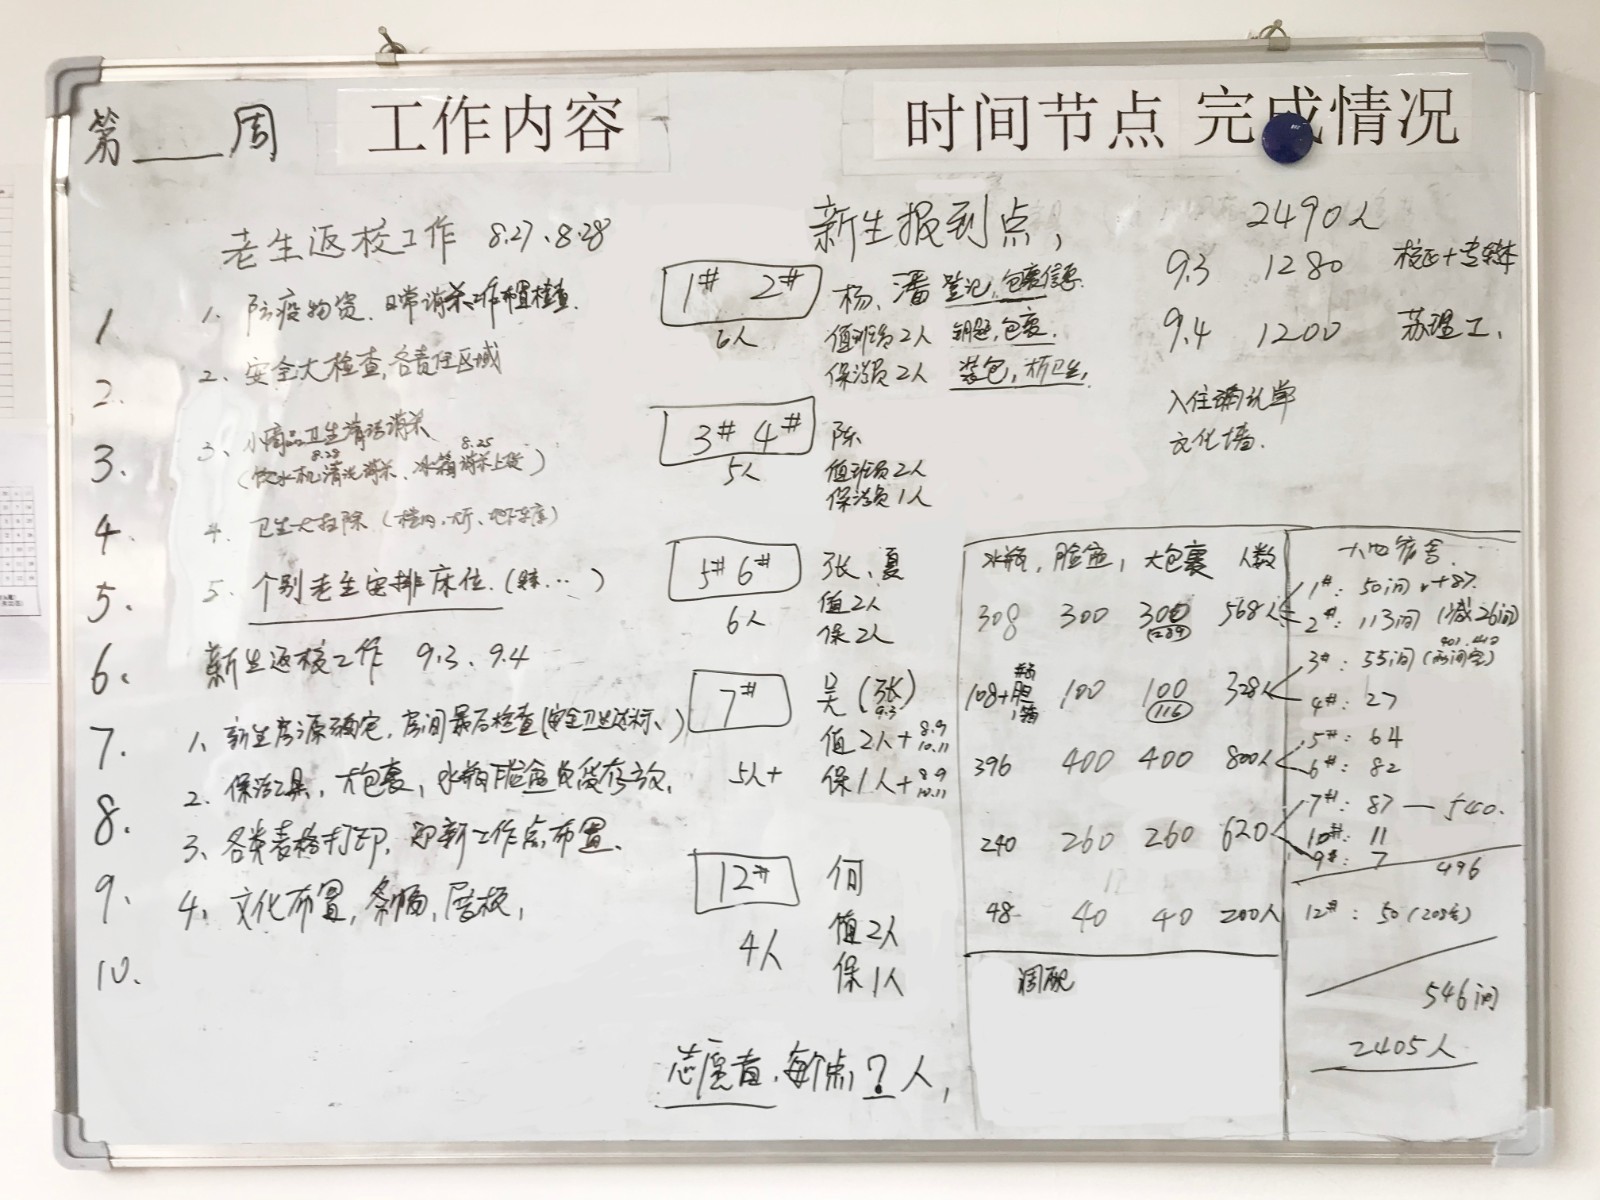 第___周 工作内容 时间节点 完成情况
1.
2.
3.
4.
5.
6.
7.
8.
9.
10.
老生返校工作 8.27、8.28
1、防疫物资、日常消杀工作布置检查.
2、安全大检查,各责任区域
3、小商品卫生清洁消杀
(饮水机清洗消杀、冰箱消杀上货)
8.28 8.25
4、卫生大扫除(楼内、大厅、地下车库)
5、个别老生安排床位.
新生返校工作 9.3、9.4
1、新生房源确定,房间最后检查(安全卫生达标、)
2、保洁工具,大包裹,水瓶脸盆负责存放,
3、各类表格打印,迎新工作点布置、
4、文化布置,条幅,展板,
新生报到点,
1# 2#
6人
杨、潘 登记,包裹信息
值班员2人 钥匙,包裹.
保洁员2人 装包,拆卫生,
3# 4#
5人
陈
值班员2人
保洁员1人
5# 6#
6人
张、夏
值2人
保2人
7#
5人+
吴(张)
9.3
值2人+8.9 10.11
保1人+8.9 10.11
12#
4人
何
值2人
保1人
志愿者,每个点?人,
2490人
9.3 1280 校企+专转本
9.4 1200 苏理工、
入住确认单
文化墙.
水瓶, 脸盆, 大包裹 人数
308 300 300 (289) 568人
108+ 胆1箱 100 100 (116) 328人
396 400 400 800人
240 260 260 620
48 40 40 200人
调配
大四宿舍
1#: 50间 +87.
2#: 113间 (减26间)
3#: 55间 (两间空)
4#: 27
5#: 64
6#: 82
7#: 87 — 540.
10#: 11
9#: 7
496
12#: 50
546间
2405人